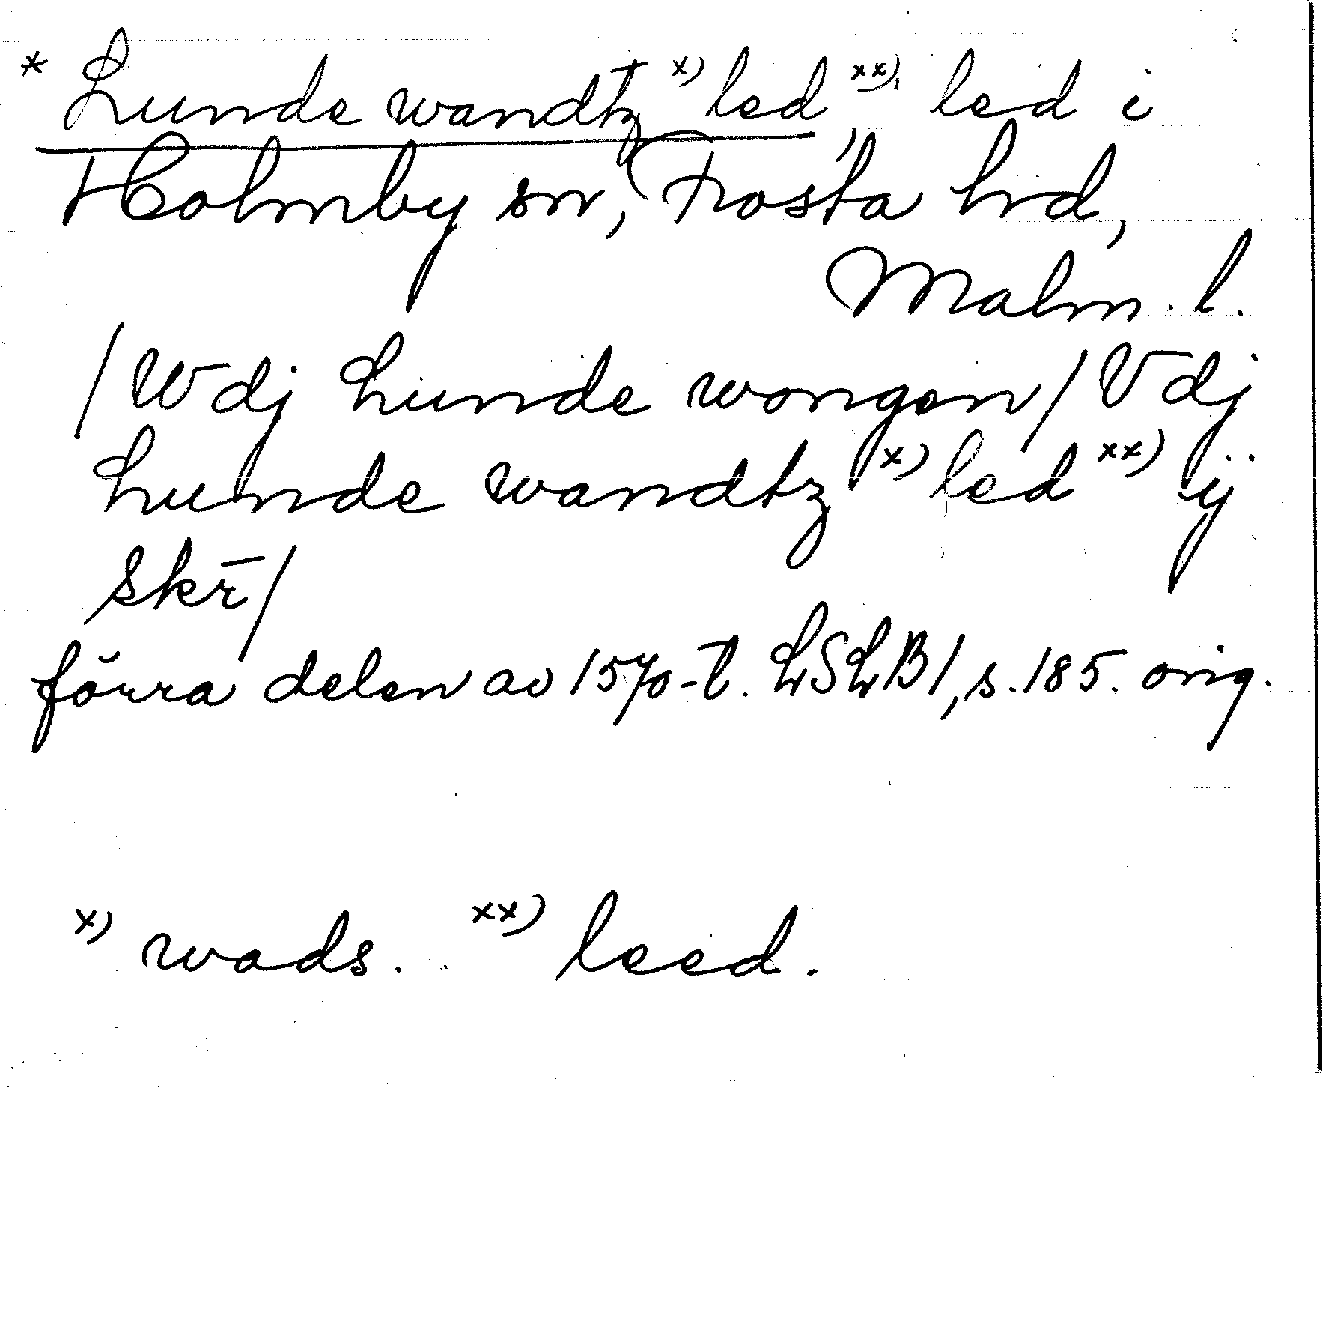 * Lunde wandtz x) led xx), led i
Holmby sn, Frosta hd,
Malm. l.
/ Wdj Lunde wongen / Vdj
Lunde wandtz x) led xx) ij
skr̄ /
förra delen av 1570-t. LSLB1, s. 185. orig.
x) wads. xx) leed.